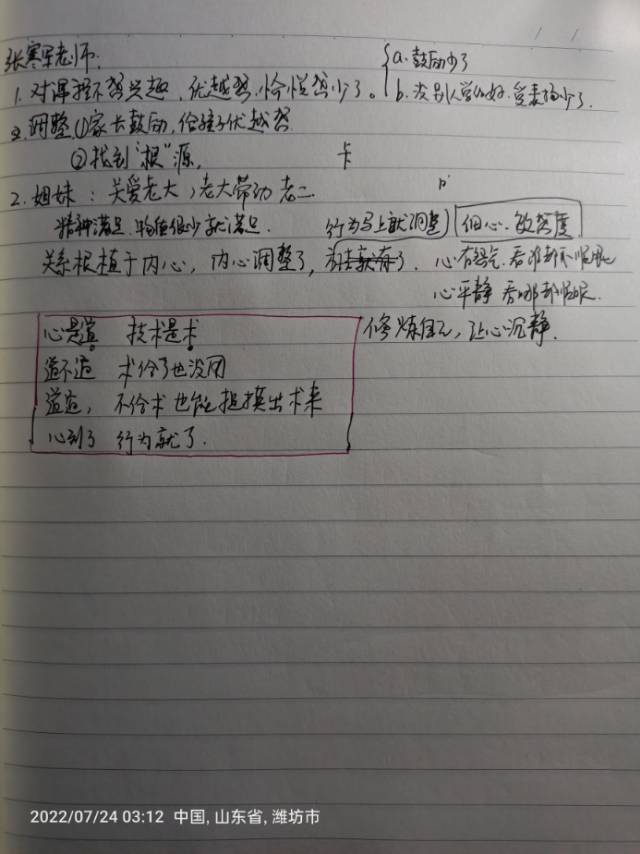 张寒军老师:
a. 鼓励少了
1. 对课程不感兴趣、优越感、愉悦感少了。 b. 没别人学的好、受表扬少了.
调整①家长鼓励, 给孩子优越感
②找到"根"源.
卡
2. 姐妹: 关爱老大, 老大带动老二
精神满足 物质很少就满足. 行为马上就调整 细心、敏感度
关系根植于内心, 内心调整了, 了. 心有怨气 看哪都不顺眼
心平静 看哪都顺眼.
心是道 技术是术 修炼自己, 让心沉静.
道不通 术给了也没用
道通, 不给术也能捉摸出术来
心到了 行为就了.
2022/07/24 03:12 中国, 山东省, 潍坊市